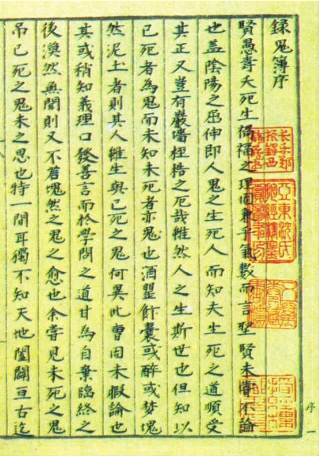 録鬼簿序
賢愚壽夭死生禍福之理固兼乎氣數而言聖賢未嘗不論
也蓋陰陽之屈伸即人鬼之生死人而知夫生死之道順受
其正又豈有巖墻桎梏之厄哉雖然人之生斯世也但知以
已死者為鬼而未知未死者亦鬼也酒罌飯囊或醉或夢塊
然泥土者則其人雖生與已死之鬼何異此曹固未暇論也
其或稍知義理口發善言而於學問之道甘為自棄臨終之
後漠然無聞則又不若塊然之鬼之愈也余嘗見未死之鬼
吊已死之鬼未之思也特一間耳獨不知天地闔闢亘古迄
序 一